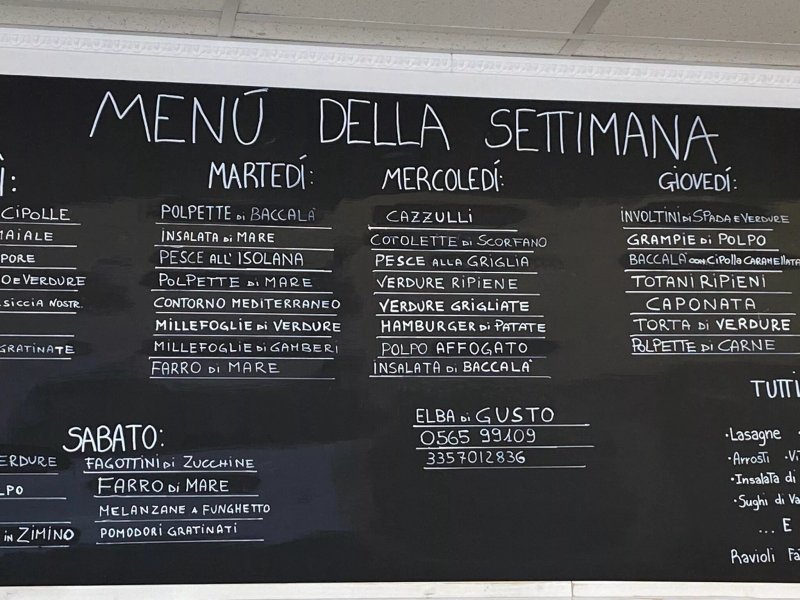 MENÚ DELLA SETTIMANA
Ì:
CIPOLLE
MAIALE
PORE
O E VERDURE
SICCIA NOSTR.
GRATINATE
MARTEDÍ:
POLPETTE di BACCALÀ
INSALATA di MARE
PESCE ALL'ISOLANA
POLPETTE di MARE
CONTORNO MEDITERRANEO
MILLEFOGLIE di VERDURE
MILLEFOGLIE di GAMBERI
FARRO di MARE
MERCOLEDÍ:
CAZZULLI
COTOLETTE di SCORFANO
PESCE ALLA GRIGLIA
VERDURE RIPIENE
VERDURE GRIGLIATE
HAMBURGER di PATATE
POLPO AFFOGATO
INSALATA di BACCALÀ
GIOVEDÍ:
INVOLTINI di SPADA E VERDURE
GRAMPIE di POLPO
BACCALÀ con CIPOLLA CARAMELLATA
TOTANI RIPIENI
CAPONATA
TORTA di VERDURE
POLPETTE di CARNE
ERDURE
LPO
IN ZIMINO
SABATO:
FAGOTTINI di ZUCCHINE
FARRO di MARE
MELANZANE A FUNGHETTO
POMODORI GRATINATI
ELBA di GUSTO
0565 99109
3357012836
TUTTI
·Lasagne
·Arrosti ·Vi
·Insalata di
·Sughi di Va
... E
Ravioli Fa